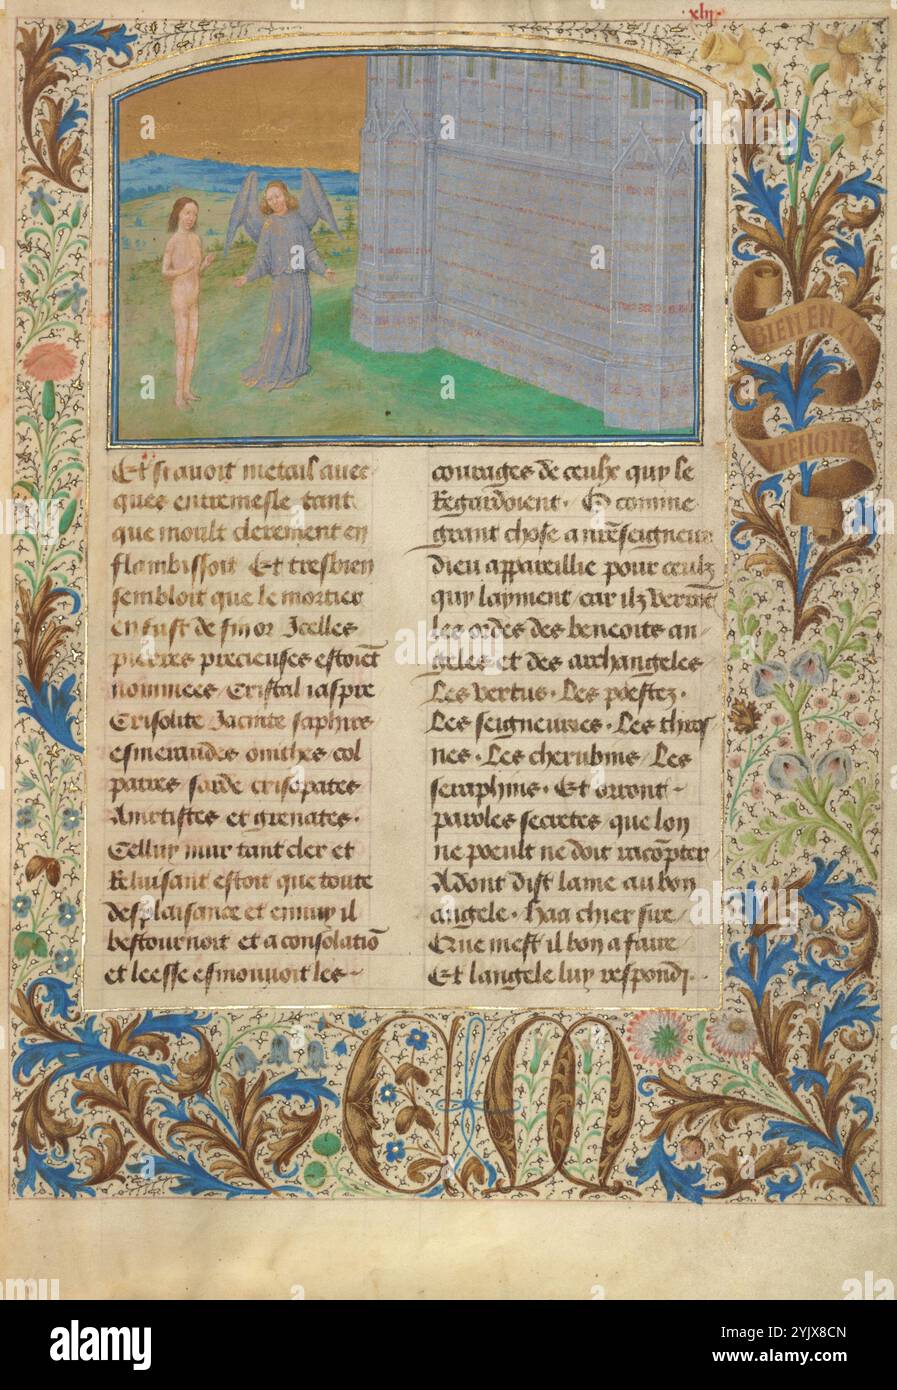 xliij
BIEN EN A
VIENGNE
Et si avoit metail avec
ques entremesle tant
que moult clerement en
flambissoit Et tresbien
sembloit que le mortier
en fust de fin or Icelles
pierres precieuses estoiēt
nommees Cristal iaspre
Crisolite Jacinte saphirs
esmeraudes onithes col
patres sarde crisopates
Amatistes et grenates.
Celluy mur tant cler et
Reluisant estoit que toute
desplaisance et ennuy il
bestournoit et a consolatiō
et leesse esmouvoit les
courages de ceulx quy le
Regardoient. O comme
grant chose a nr̄e seigneur
dieu appareillie pour ceulz
quy layment car ilz verront
les ordes des benoits an
geles et des archangeles
Les vertus. Les poestez.
Les seigneuries. Les thros
nes. Les cherubins Les
seraphins. Et orront
paroles secretes que lon
ne poeult ne doit racōpter
Adont dist lame au bon
angele. haa chier sire
Que mest il bon a faire
Et langele luy respondi.
CM
alamy
Image ID: 2YJX8CN
www.alamy.com